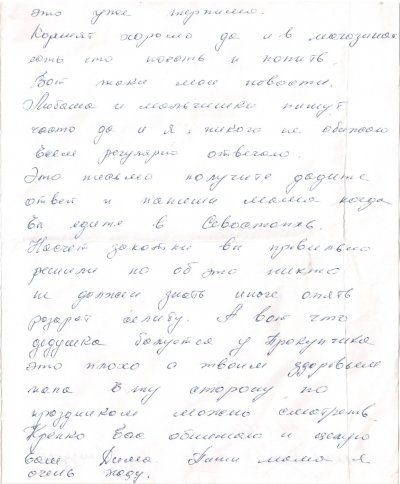 это уже терпимо.
Кормят хорошо да и в магазинах
есть что поесть и попить.
Вот таки мои новости.
Любаша и мальчишки пишут
часто да и я никого не обижаю
всем регулярно отвечаю.
Это письмо получите дадите
ответ и напиши мама когда
вы едите в Севастополь.
Насчет закатки вы правильно
решили но об это никто
не должен знать иначе опять
раздрат селибу. А вот что
дедушка балуется у Прокупчика
это плохо с твоим здоровьем
папа в ту сторону по
праздникам можно смотреть.
Крепко Вас обнимаю и целую
Ваш Дима. Пиши мама я
очень жду.